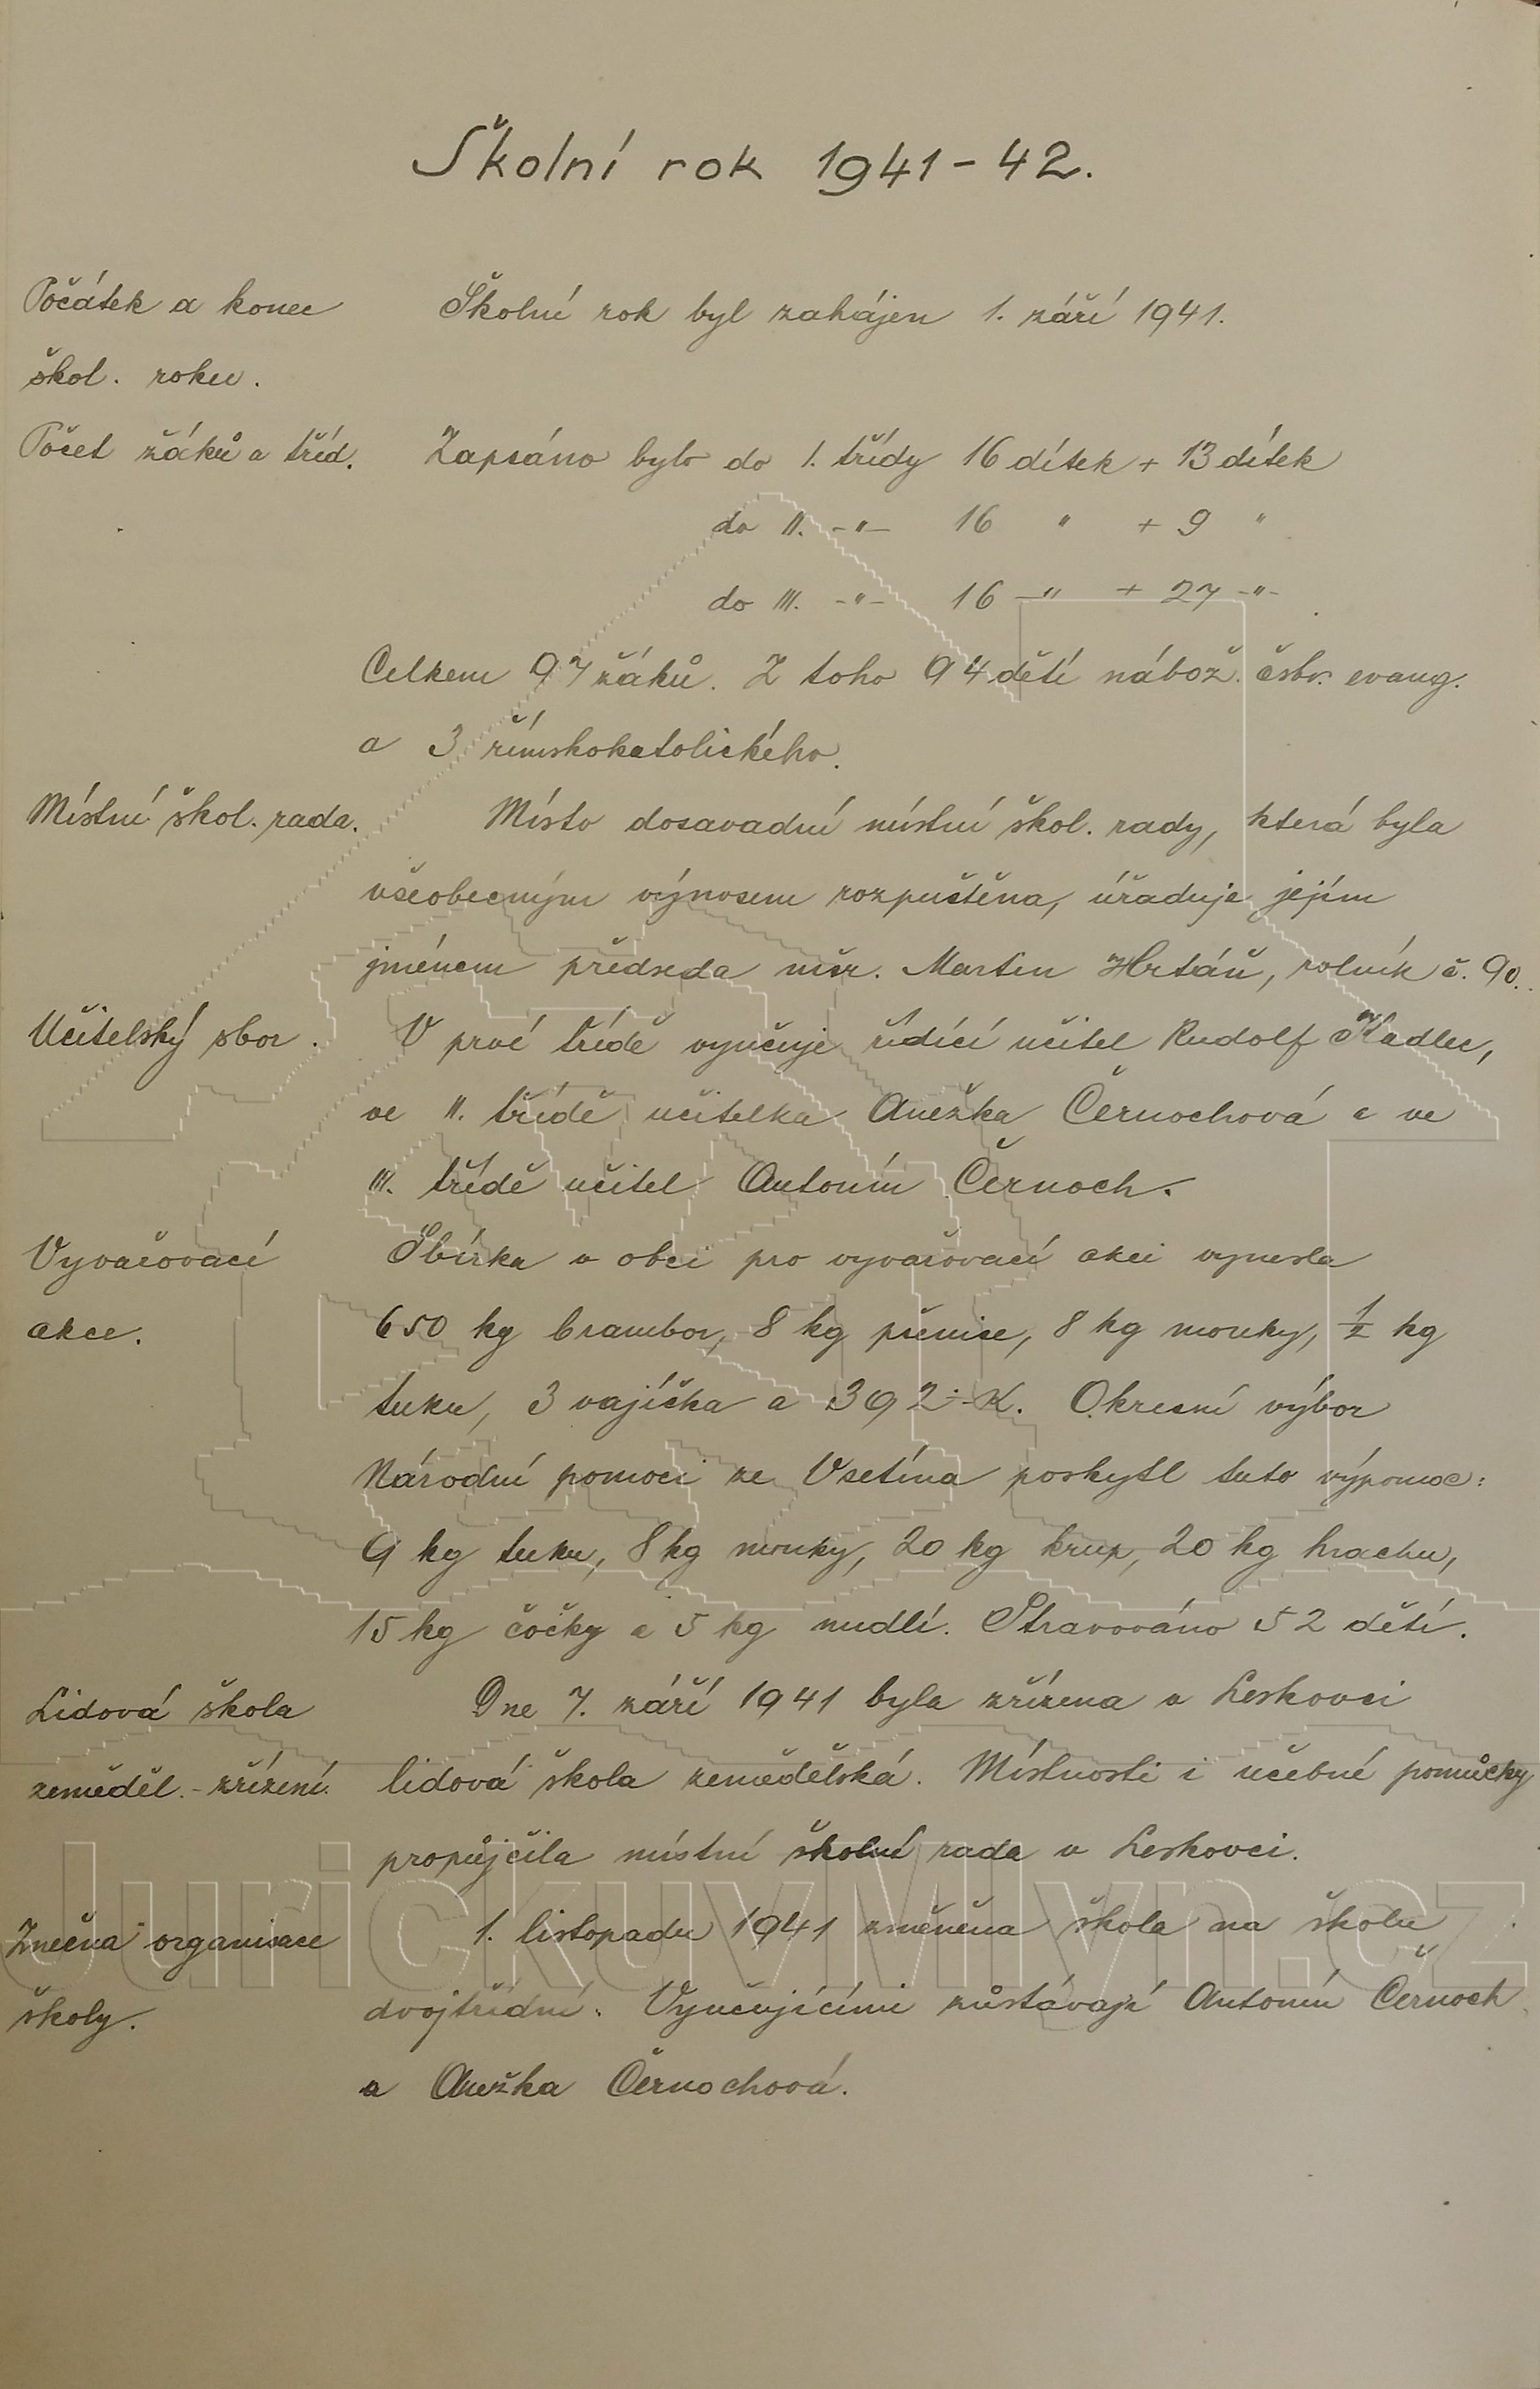 Školní rok 1941-42.
Počátek a konec
škol. roku.
Školní rok byl zahájen 1. září 1941.
Počet žáků a tříd.
Zapsáno bylo do 1. třídy 16 dítek + 13 dítek
do II. -"- 16 " + 9 "
do III. -"- 16 -" + 27 -"-
Celkem 97 žáků. Z toho 94 dětí nábož. čsbr. evang.
a 3 římskokatolického.
Místní škol. rada.
Místo dosavadní místní škol. rady, která byla
všeobecným výnosem rozpuštěna, úřaduje jejím
jménem předseda mšr. Martin Hrtáň, rolník č. 90.
Učitelský sbor.
V prvé třídě vyučuje řídící učitel Rudolf Kadlec,
ve II. třídě učitelka Anežka Černochová a ve
III. třídě učitel Antonín Černoch.
Vyvařovací
akce.
Sbírka v obci pro vyvařovací akci vynesla
650 kg brambor, 8 kg pšenice, 8 kg mouky, 1/2 kg
tuku, 3 vajíčka a 392·- K. Okresní výbor
Národní pomoci ze Vsetína poskytl tuto výpomoc:
9 kg tuku, 8 kg mouky, 20 kg krup, 20 kg hrachu,
15 kg čočky a 5 kg nudlí. Stravováno 52 dětí.
Lidová škola
zeměděl. - zřízení.
Dne 7. září 1941 byla zřízena v Leskovci
lidová škola zemědělská. Místnosti i učebné pomůcky
propůjčila místní školní rada v Leskovci.
Změna organisace
školy.
1. listopadu 1941 změněna škola na školu
dvojtřídní. Vyučujícími zůstávají Antonín Černoch
a Anežka Černochová.
JurickuvMlyn.cz